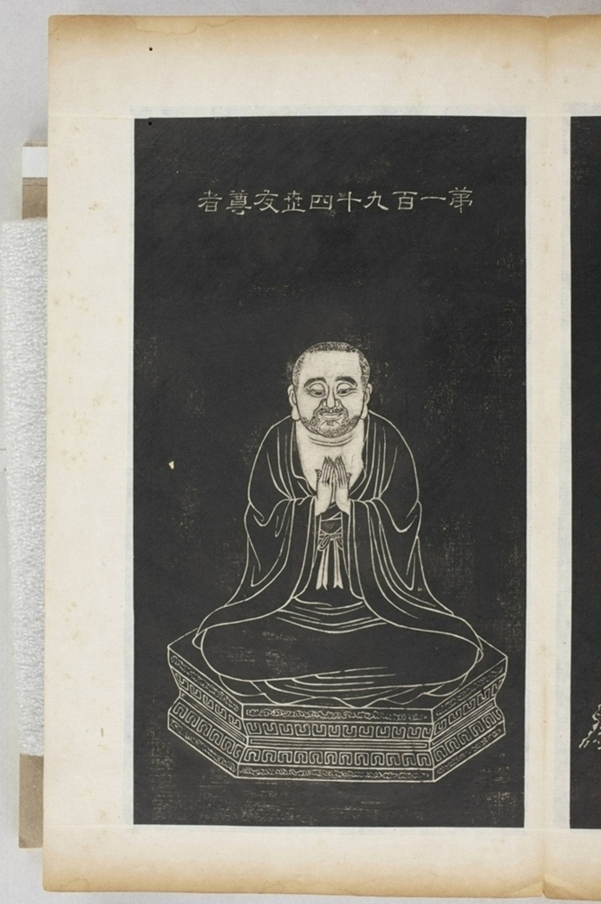 苐一百九十四世友尊者